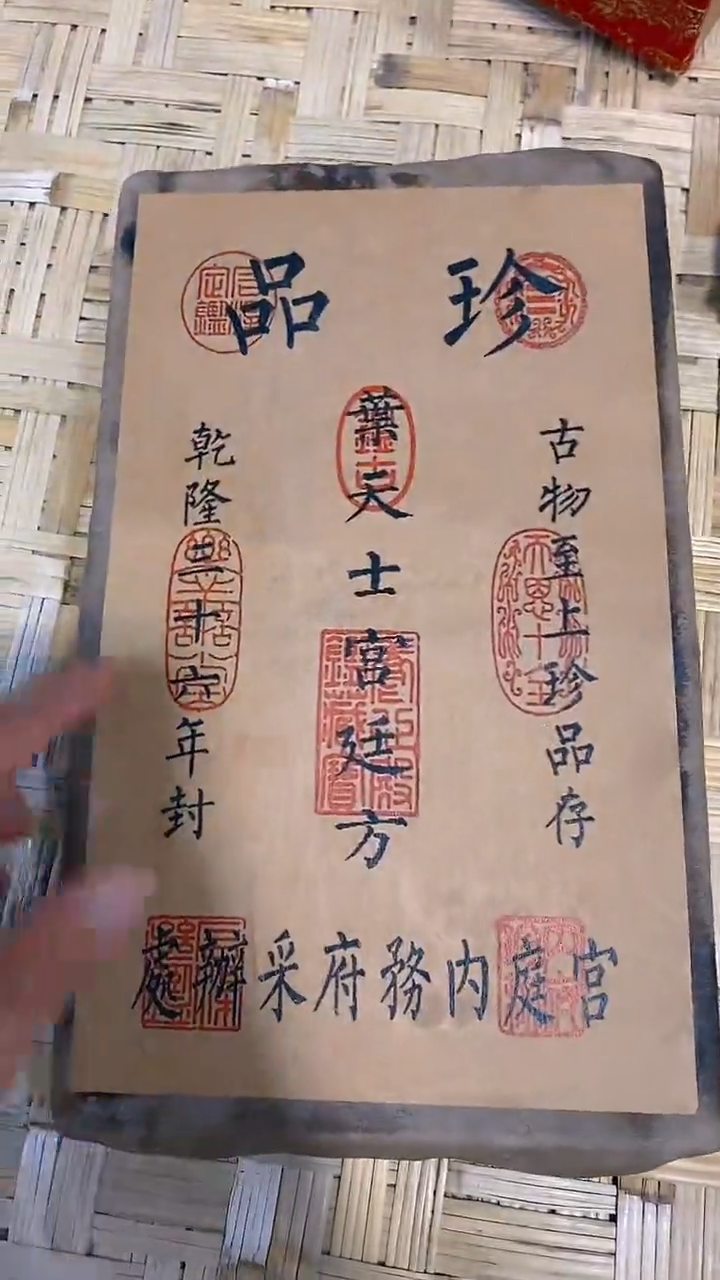 珍品
古物至上珍品存
葉天士宮廷方
乾隆三十六年封
宮庭内務府采辦處